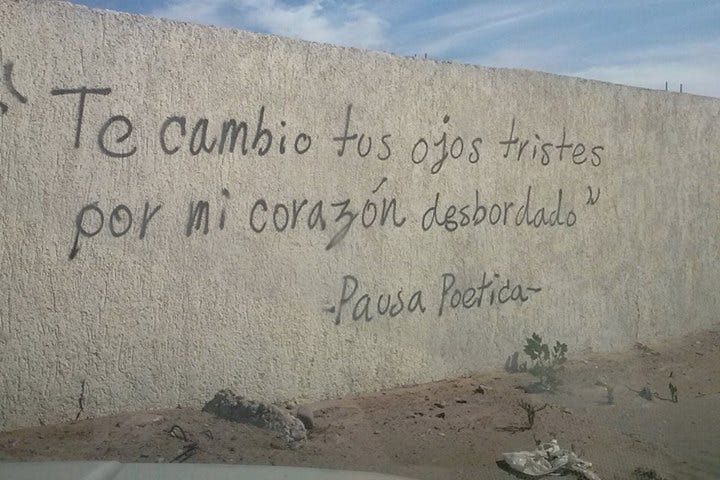 "Te cambio tus ojos tristes
por mi corazón desbordado"
-Pausa Poetica-